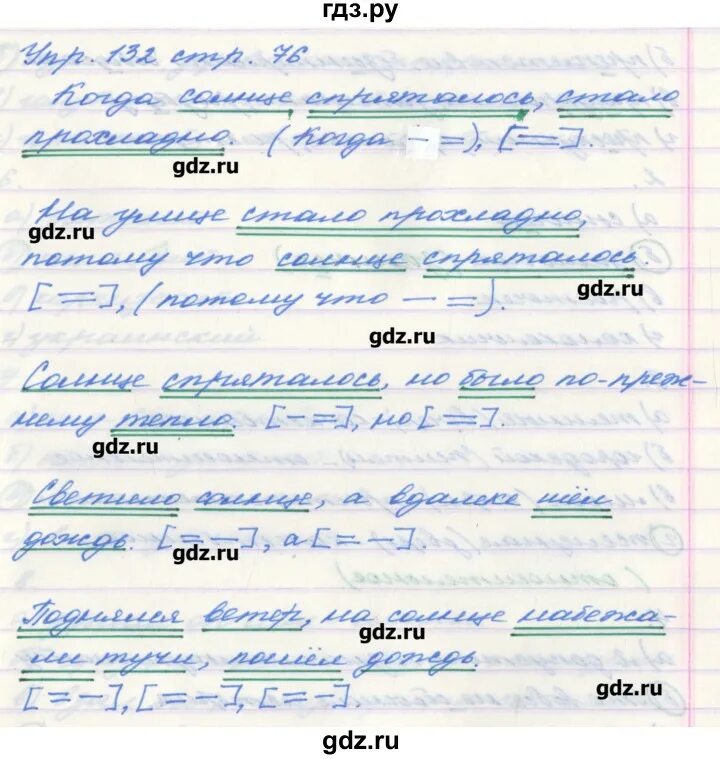 гдз.ру
Упр. 132 стр. 76
Когда солнце спряталось, стало
прохладно. (Когда – =), [==].
gdz.ru
На улице стало прохладно,
gdz.ru
потому что солнце спряталось.
gdz.ru
[==], (потому что – =).
gdz.ru
Солнце спряталось, но было по-преж-
нему тепло. [– =], но [==].
gdz.ru
Светило солнце, а вдалеке шёл
дождь. [= –], а [= –].
gdz.ru
Поднялся ветер, на солнце набежа-
gdz.ru
ли тучи, пошёл дождь.
[= –], [= –], [= –].
gdz.ru
gdz.ru